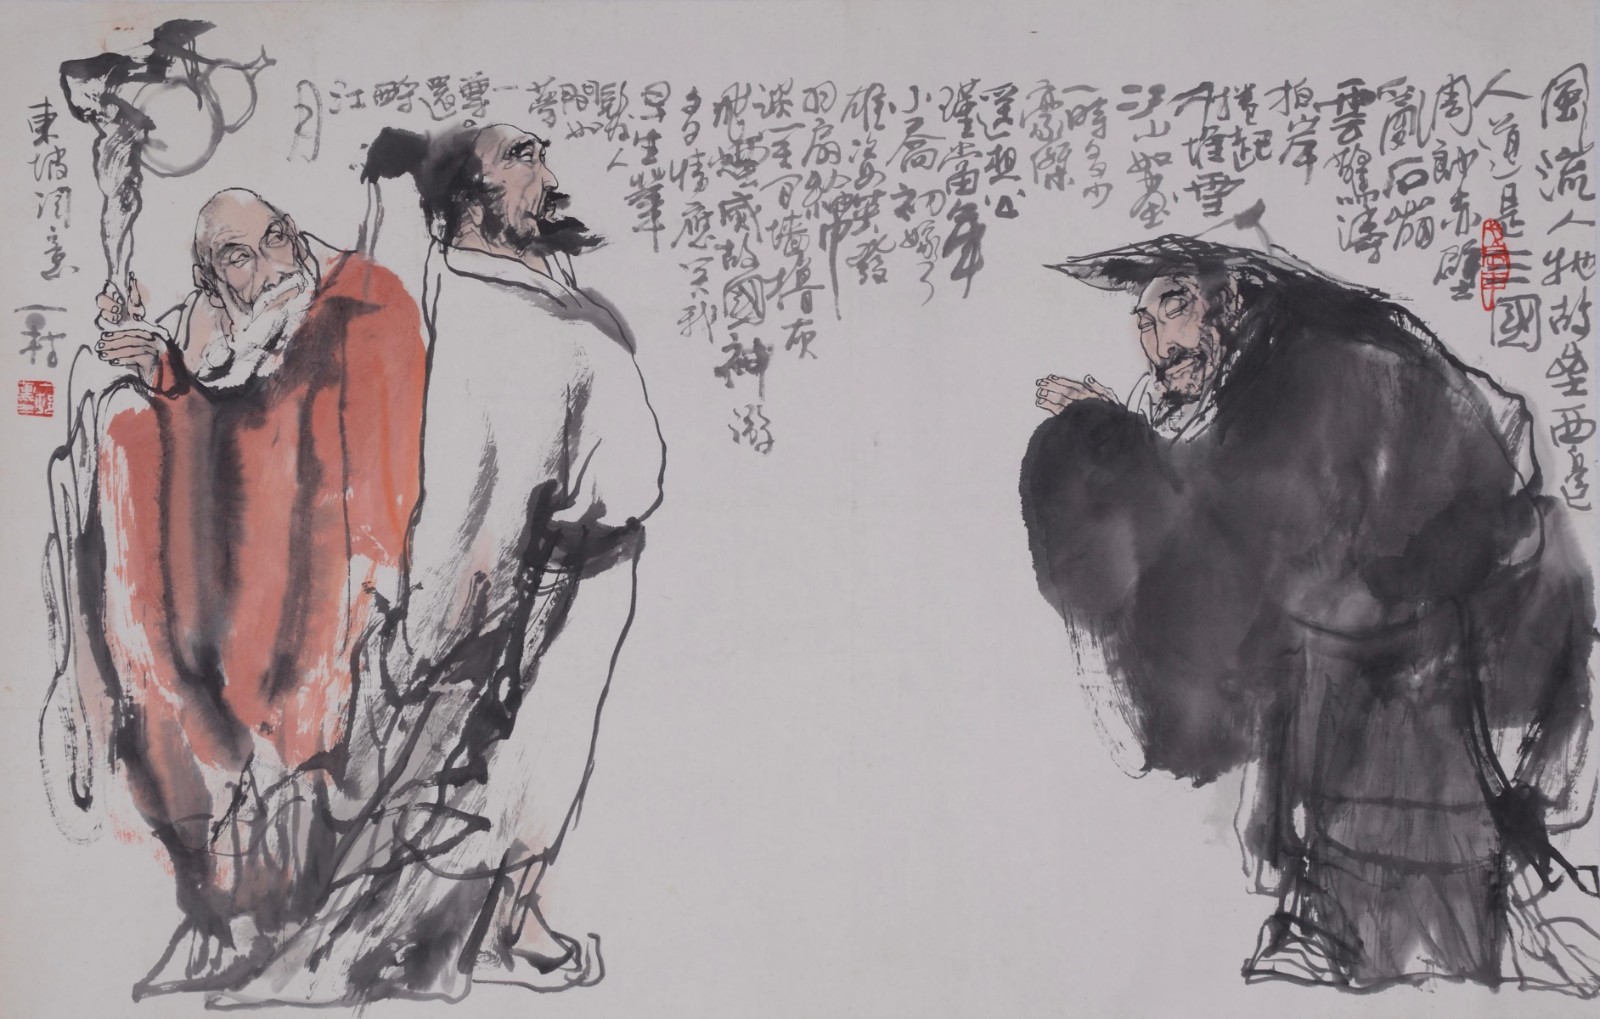 風流人物故壘西邊
人道是三國
周郎赤壁
亂石崩
雲驚濤
拍岸
捲起
千堆雪
江山如畫
一時多少
豪傑
遙想公
瑾當年
小喬初嫁了
雄姿英發
羽扇綸巾
談笑間墻櫓灰
飛煙滅故國神游
多情應笑我
早生華
髮人
間如
夢
一
尊
還
酹
江
月
東坡詞意